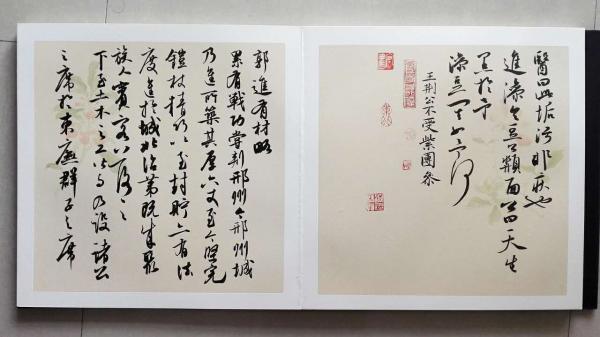 醫曰此垢污非疾也
進澡豆令公頮面公曰天生
黑於予
澡豆其如予何
王荊公不受紫團參
郭進有材略
累有戰功嘗刺邢州今邢州城
乃進所築其厚六丈至今堅完
鎧杖精巧以至封貯亦有法
度進於城北治第既成聚
族人賓客落之
下至土木之工皆與乃設諸公
之席於東廡群子之席